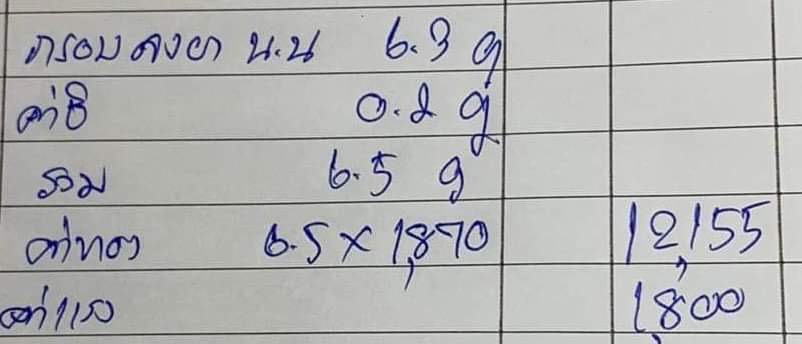 กรอบคงยา น.น 6.3 g
ค่าซิ 0.2 g
รวม 6.5 g
ค่าทอง 6.5 x 1,870 12,155
ค่าแรง 1,800